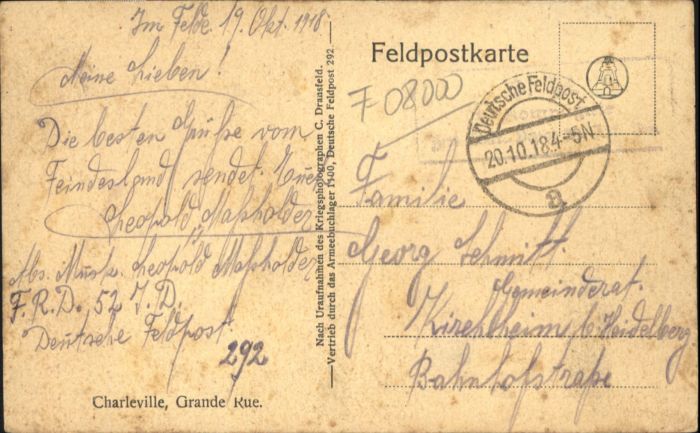 Im Felde 19. Okt. 1918.
Meine Lieben!
Die besten Grüße vom
Feindesland sendet Euer
Leopold Maßholder
Abs. Musk. Leopold Maßholder
F.R.D., 52 J.D.
Deutsche Feldpost.
292
Charleville, Grande Rue.
Nach Uraufnahmen des Kriegsphotographen C. Dransfeld.
Vertrieb durch das Armeebuchlager 1400, Deutsche Feldpost 292.
Feldpostkarte
F 08000
Deutsche Feldpost
20.10.18.4-5N
a
Familie
Georg Schmitt
Gemeinderat.
Kirchheim b. Heidelberg
Bahnhofstraße